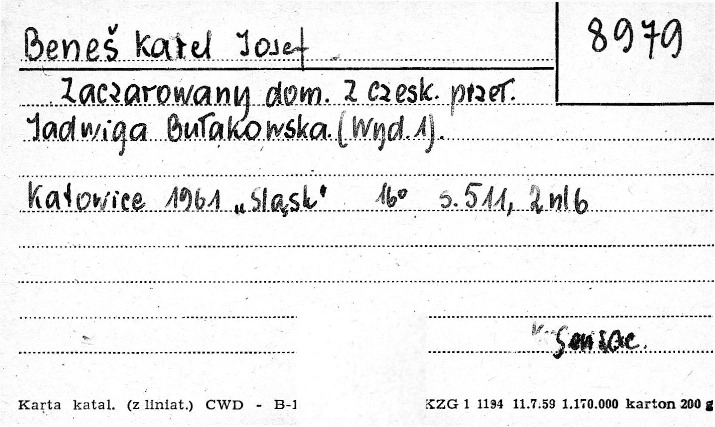 Beneš Karel Josef
8979
Zaczarowany dom. Z czesk. przeł.
Jadwiga Bułakowska. (Wyd. 1).
Katowice 1961 „Śląsk" 16° s. 511, 2 nlb
Karta katal. (z liniat.) CWD - B-1
KZG 1 1194 11.7.59 1.170.000 karton 200 g